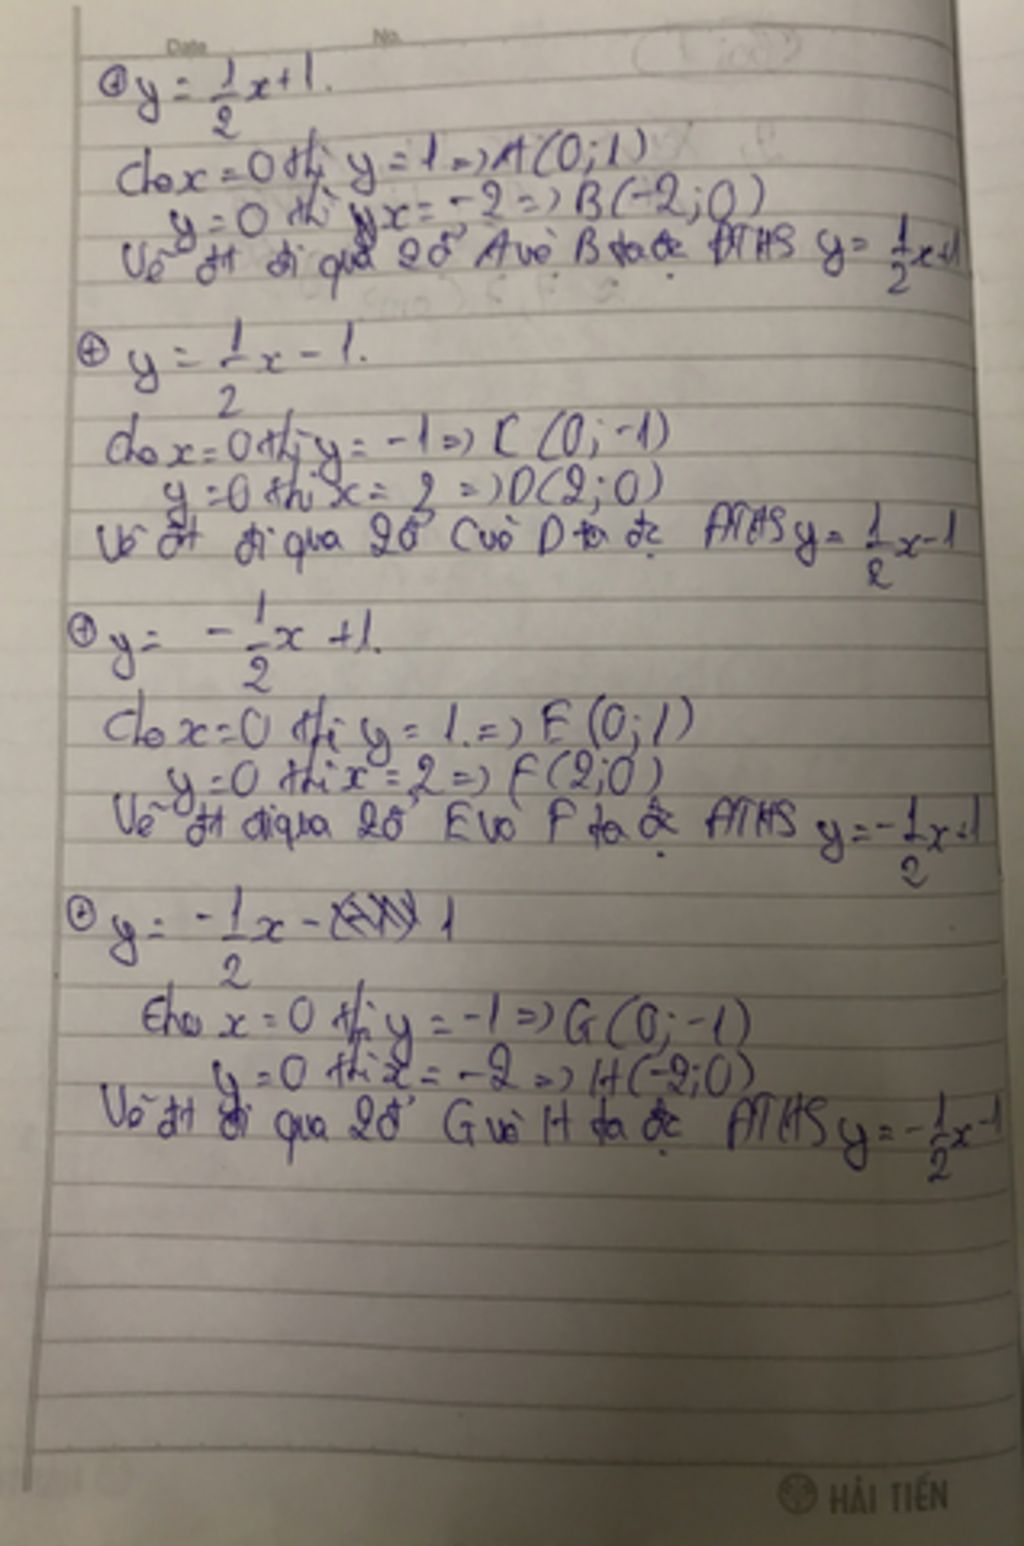 Date No.
⊕ y = 1/2 x + 1.
Cho x = 0 thì y = 1 => A(0; 1)
y = 0 thì x = -2 => B(-2; 0)
Vẽ đt đi qua 2đ' A và B ta đc ĐTHS y = 1/2 x + 1
⊕ y = 1/2 x - 1.
Cho x = 0 thì y = -1 => C(0; -1)
y = 0 thì x = 2 => D(2; 0)
Vẽ đt đi qua 2đ' C và D ta đc ĐTHS y = 1/2 x - 1
⊕ y = -1/2 x + 1.
Cho x = 0 thì y = 1. => E(0; 1)
y = 0 thì x = 2 => F(2; 0)
Vẽ đt đi qua 2đ' E và F ta đc ĐTHS y = -1/2 x + 1
⊕ y = -1/2 x - 1
Cho x = 0 thì y = -1 => G(0; -1)
y = 0 thì x = -2 => H(-2; 0)
Vẽ đt đi qua 2đ' G và H ta đc ĐTHS y = -1/2 x - 1
HẢI TIẾN